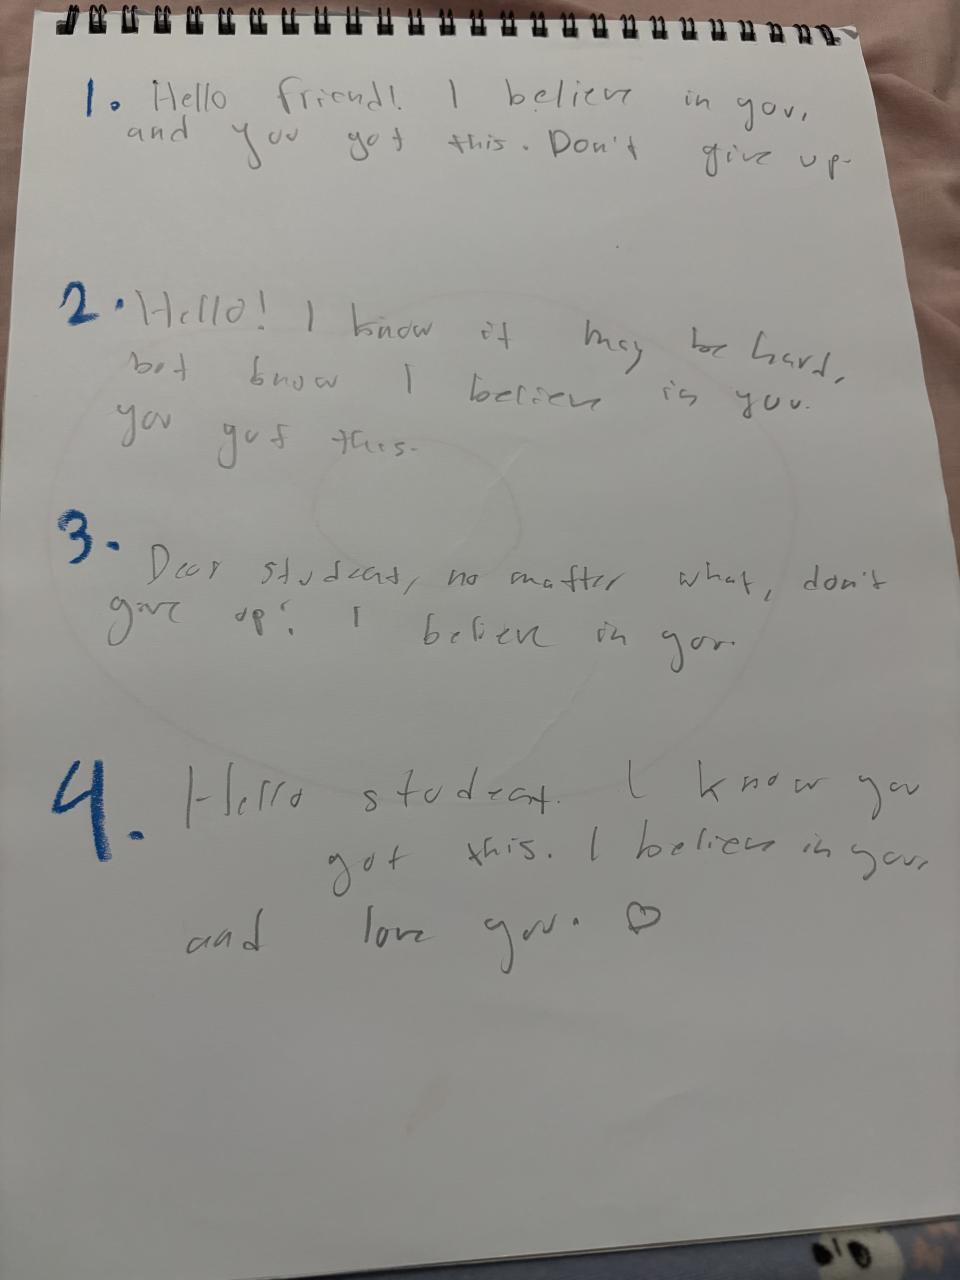 1. Hello friend! I believe in you,
and you got this. Don't give up.
2. Hello! I know it may be hard,
but know I believe in you.
you got this.
3. Dear student, no matter what, don't
give up! I believe in you.
4. Hello student. I know you
got this. I believe in you,
and love you. ♡